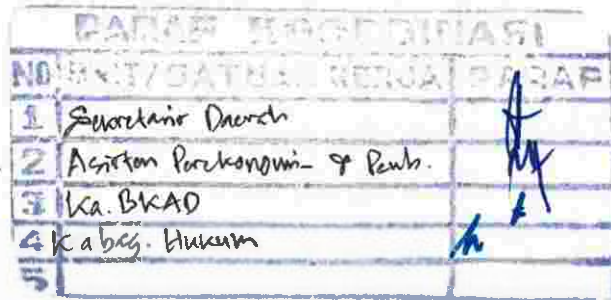 PARAF KOORDINASI
NO UNIT/SATUAN KERJA PARAF
1 Sekretaris Daerah
2 Asisten Perekonomian & Pemb.
3 Ka. BKAD
4 Kabag. Hukum
5